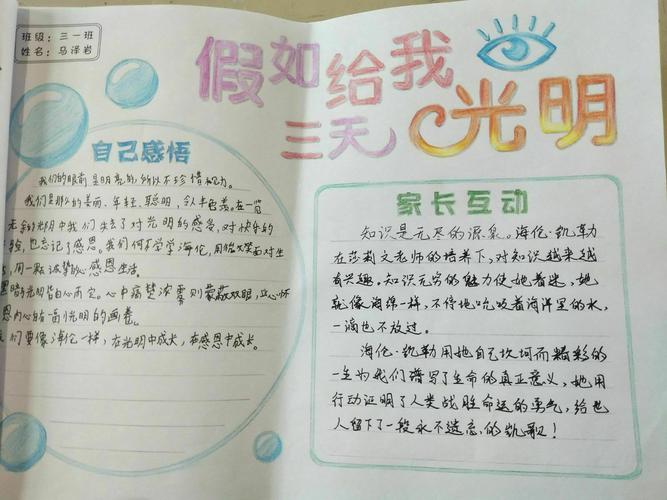 班级：三一班
姓名：马泽岩
假如给我
三天光明
自己感悟
我们的眼前是明亮的，所以不珍惜视力。
我们是那么的美丽、年轻、聪明，
光明中我们失去了对光明的感受，对快乐的
也忘记了感恩。我们何不学学海伦，用微笑面对生
用一颗诚挚的心感恩生活。
光明皆由心而定。心中痛楚浓雾则蒙蔽双眼，心怀
恩内心自有光明的画卷。
们要像海伦一样，在光明中成长，在感恩中成长。
家长互动
知识是无尽的源泉。海伦·凯勒力
在莎莉文老师的培养下，对知识越来越
有兴趣，知识无穷的魅力使她着迷，她
就像海绵一样，不停地吮吸着海洋里的水，
一滴也不放过。
海伦·凯勒用她自己坎坷而精彩的
一生为我们谱写了生命的真正意义，她用
行动证明了人类战胜命运的勇气，给世
人留下了一段永不遗忘的凯歌！